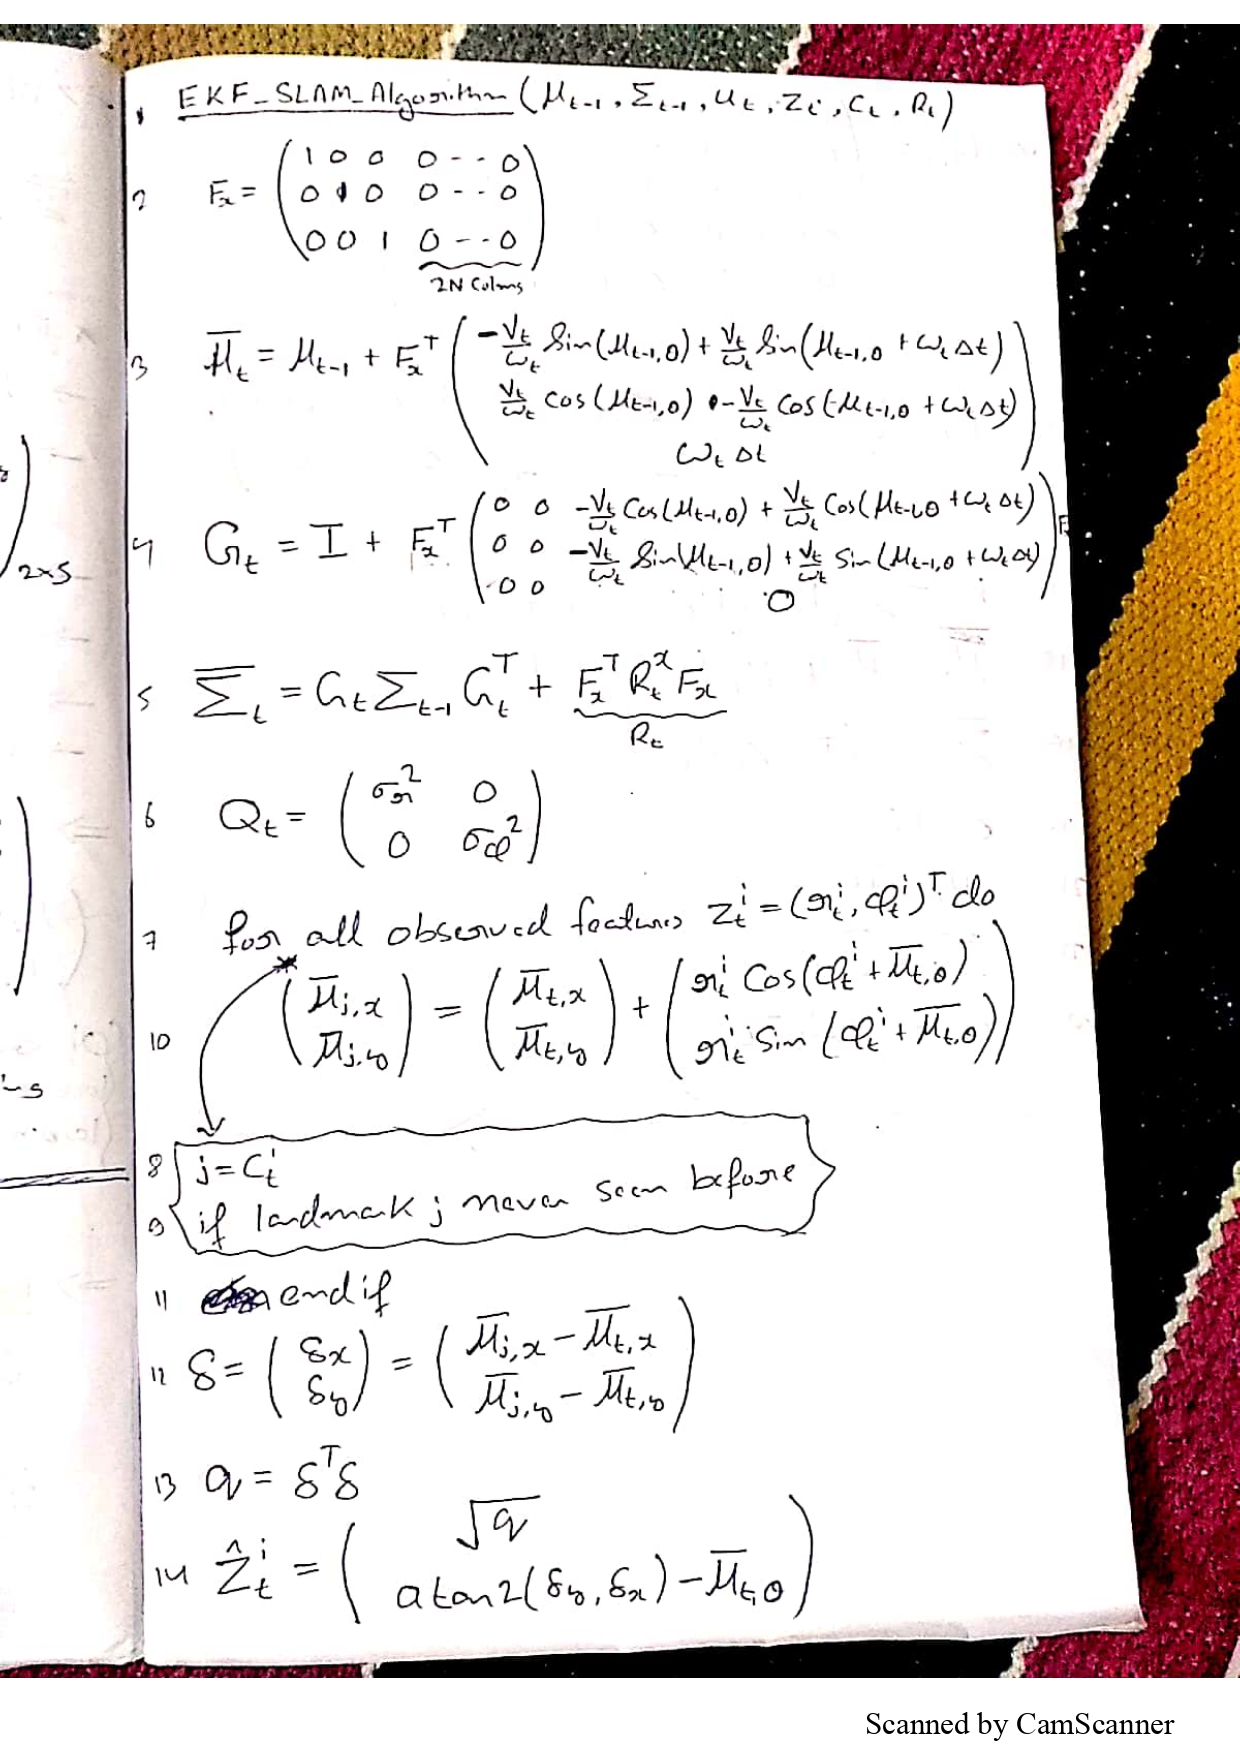 1 EKF_SLAM_Algorithm (μ_{t-1}, Σ_{t-1}, u_t, z_t, c_t, R_t)
2 F_x = ( 1 0 0 0 - - 0
0 1 0 0 - - 0
0 0 1 0 - - 0 )
2N Colms
3 μ̄_t = μ_{t-1} + F_x^T ( -v_t/ω_t Sin(μ_{t-1,θ}) + v_t/ω_t Sin(μ_{t-1,θ} + ω_t Δt)
v_t/ω_t cos(μ_{t-1,θ}) - v_t/ω_t cos(μ_{t-1,θ} + ω_t Δt)
ω_t Δt )
4 G_t = I + F_x^T ( 0 0 -v_t/ω_t Cos(μ_{t-1,θ}) + v_t/ω_t Cos(μ_{t-1,θ} + ω_t Δt)
0 0 -v_t/ω_t Sin(μ_{t-1,θ}) + v_t/ω_t Sin(μ_{t-1,θ} + ω_t Δt)
0 0 0 ) F
2x5
5 Σ̄_t = G_t Σ_{t-1} G_t^T + F_x^T R_t^x F_x
R_t
6 Q_t = ( σ_r^2 0
0 σ_φ^2 )
7 for all observed features z_t^i = (r_t^i, φ_t^i)^T do
10 ( μ̄_{j,x}
μ̄_{j,y} ) = ( μ̄_{t,x}
μ̄_{t,y} ) + ( r_t^i Cos(φ_t^i + μ̄_{t,θ})
r_t^i Sin(φ_t^i + μ̄_{t,θ}) )
8 j = c_t^i
9 if landmark j never seen before
11 endif
12 δ = ( δx
δy ) = ( μ̄_{j,x} - μ̄_{t,x}
μ̄_{j,y} - μ̄_{t,y} )
13 q = δ^T δ
14 ẑ_t^i = ( √q
atan2(δy, δx) - μ̄_{t,θ} )
Scanned by CamScanner